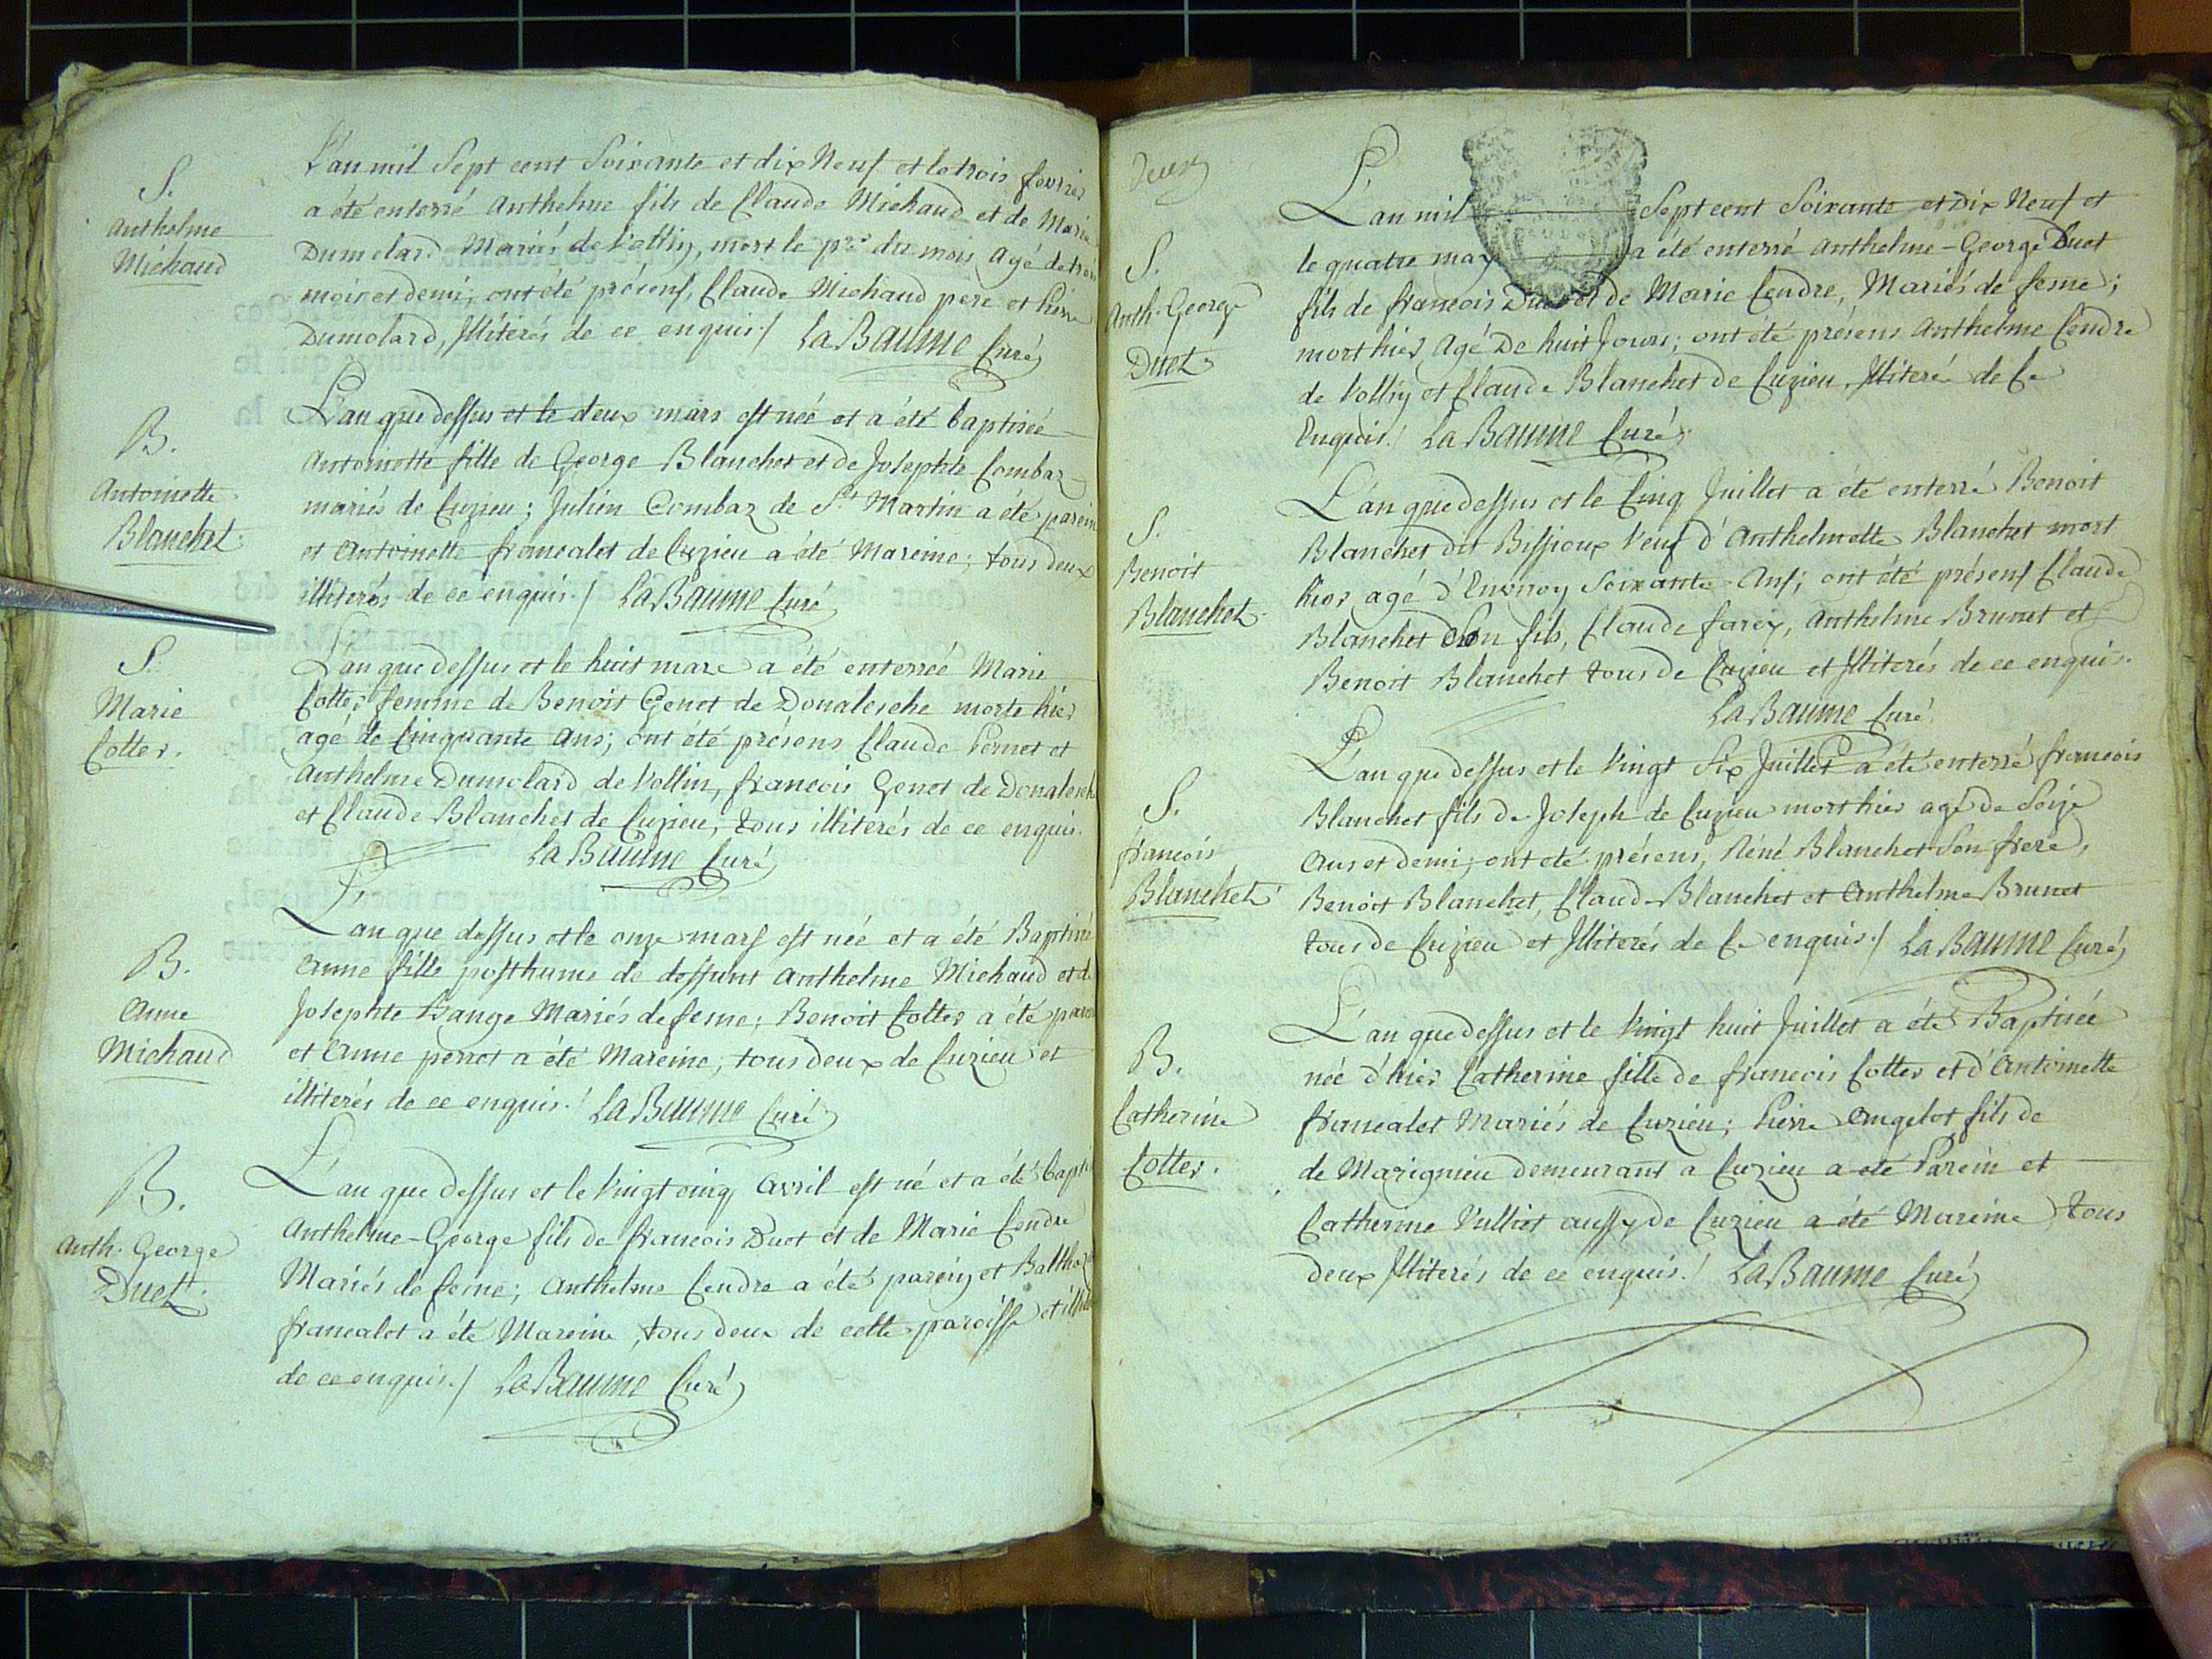 S.
Anthelme
Michaud
L'an mil Sept cent Soixante et dix Neuf et le trois fevrier
a été enterré Anthelme fils de Claude Michaud et de Marie
Dumolard Mariés de Vollin, mort le pr. du mois Agé de trois
mois et demi, ont été présens, Claude Michaud pere et Pierre
Dumolard, Illiterés de ce enquis./ La Baume Curé
B.
Antoinette
Blanchet
L'an que dessus et le deux mars est neé et a été baptiseé
Antoinette fille de George Blanchet et de Josephte Combaz
mariés de Cuzieu; Julien Combaz de St Martin a été parein
et Antoinette francalet de Cuzieu a été Mareine; tous deux
illiterés de ce enquis./ La Baume Curé
S.
Marie
Cotter.
L'an que dessus et le huit mars a été enterreé Marie
Cotter femme de Benoit Genet de Donalesche morte hier
agé de Cinquante ans; ont été présens Claude Pernet et
Anthelme Dumolard de Vollin, francois Genet de Donalesche
et Claude Blanchet de Cuzieu, tous illiterés de ce enquis.
La Baume Curé
B.
Anne
Michaud
L'an que dessus et le onze mars est née et a été Baptisé
Anne fille posthume de deffunt Anthelme Michaud et de
Josephte Bange Mariés de Cesne; Benoit Cotter a été parein
et Anne perret a été Mareine, tous deux de Cuzieu et
illiterés de ce enquis./ La Baume Curé
B.
Anth. George
Duet.
L'an que dessus et le Vingt cinq Avril est né et a été bapti
Anthelme-George fils de francois Duet et de Marie Cendre
Mariés de Cesne; Anthelme Cendre a été parein et Baltha
francalet a été Mareine, tous deux de cette paroisse et illit
de ce enquis./ La Baume Curé
deux
S.
Anth. George
Duet
L'an mil Sept cent Soixante et dix Neuf et
le quatre may a été enterré Anthelme-George Duet
fils de francois Duet et de Marie Cendre, Mariés de Cesne;
mort hier Agé De huit Jours; ont été présens Anthelme Cendre
de Vollin et Claude Blanchet de Cuzieu, Illiteré de Ce
Enquis./ La Baume Curé
S.
Benoit
Blanchet
L'an que dessus et le Cinq Juillet a été enterré Benoit
Blanchet dit Bissioux Veuf d'Anthelmette Blanchet mort
hier agé d'Environ Soixante Ans; ont été présens Claude
Blanchet Son fils, Claude farey, Anthelme Brunet et
Benoit Blanchet tous de Cuzieu et Illiterés de ce enquis.
La Baume Curé
S.
francois
Blanchet
L'an que dessus et le Vingt Six Juillet a été enterré francois
Blanchet fils de Joseph de Cuzieu mort hier agé de Seize
Ans et demi, ont été présens, Réné Blanchet Son frere,
Benoit Blanchet, Claude Blanchet et Anthelme Brunet
tous de Cuzieu et Illiterés de Ce enquis./ La Baume Curé
B.
Catherine
Cotter.
L'an que dessus et le Vingt huit Juillet a été Baptisée
née d'hier Catherine fille de francois Cotter et d'Antoinette
francalet Mariés de Cuzieu; Pierre Angelot fils de
de Marignieu demeurant a Cuzieu a été Parein et
Catherine Vulliet aussy de Cuzieu a été Mareine, tous
deux Illiterés de ce enquis./ La Baume Curé